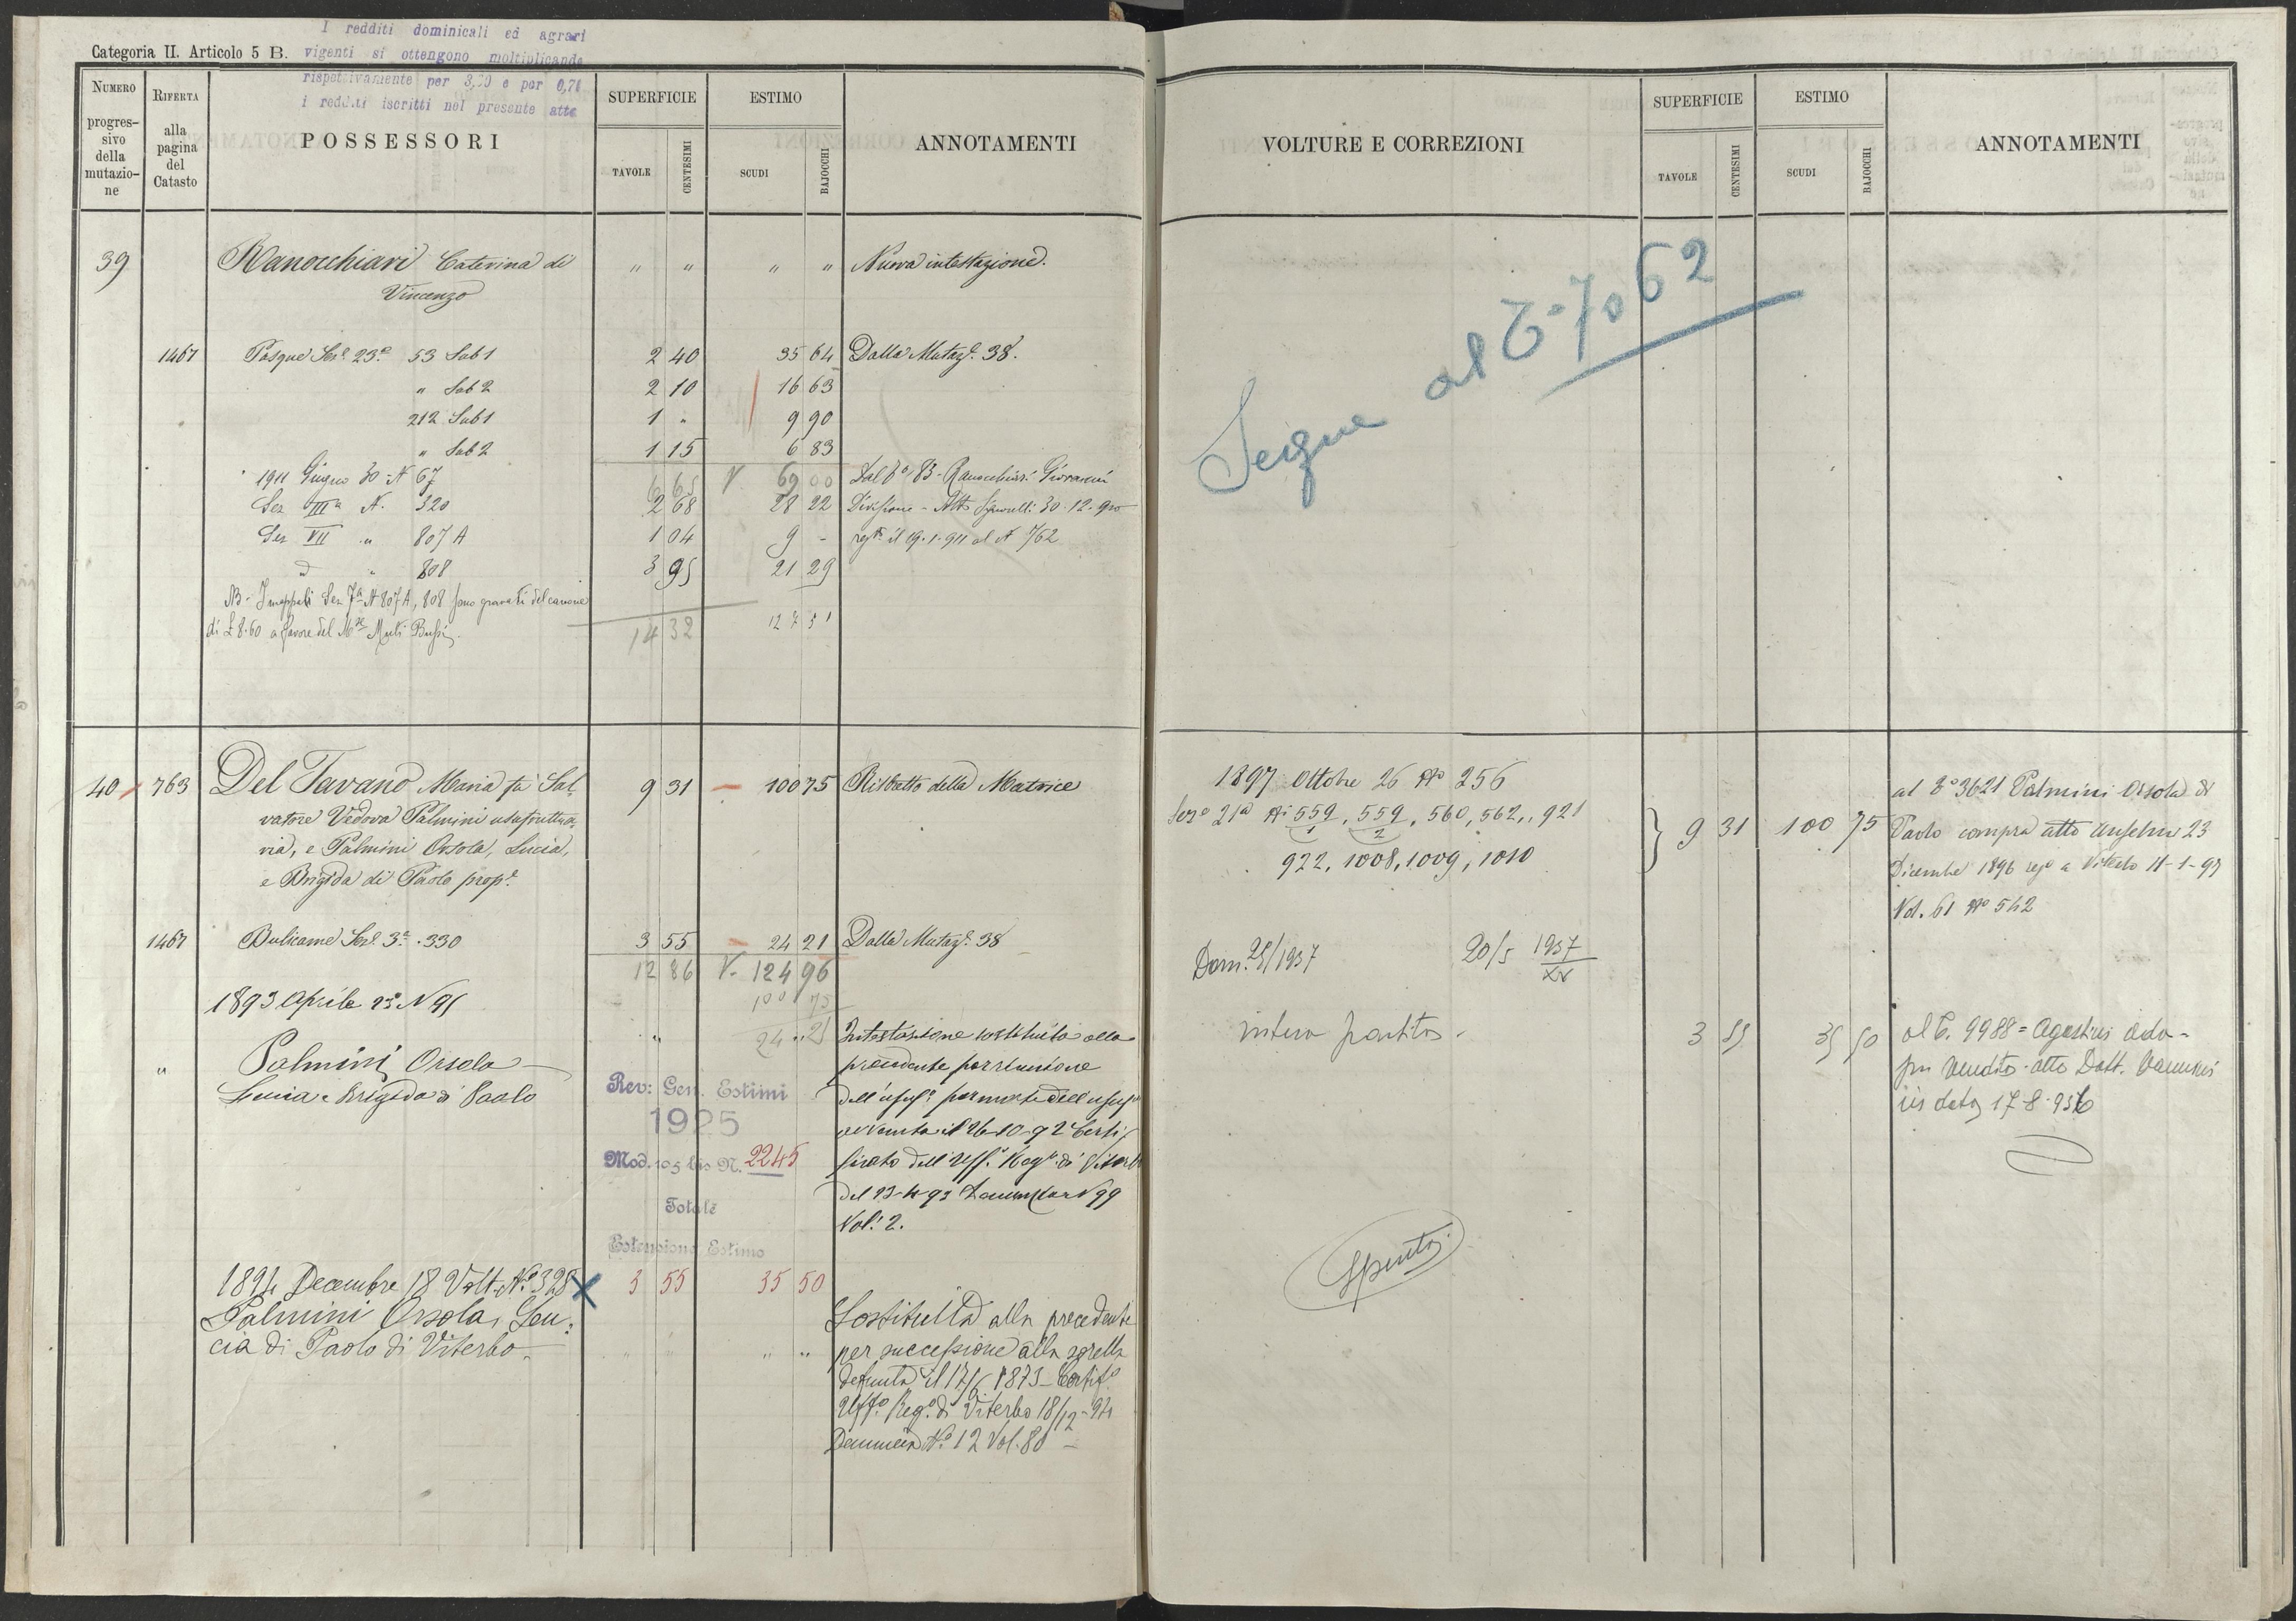 I redditi dominicali ed agrari
vigenti si ottengono moltiplicando
rispettivamente per 3,70 e per 0,70
i redditi iscritti nel presente atto
Categoria II. Articolo 5 B.
NUMERO progressivo della mutazione
RIFERTA alla pagina del Catasto
POSSESSORI
SUPERFICIE
TAVOLE CENTESIMI
ESTIMO
SCUDI BAJOCCHI
ANNOTAMENTI
39 Ranocchiari Caterina di " " " " Nuova intestazione.
Vincenzo
1467 Pasque Sez.e 23.a 53 Sub 1 2 40 35 64 Dalla Mutaz.e 38.
" Sub 2 2 10 16 63
212 Sub 1 1 " 9 90
" Sub 2 1 15 6 83
6 65 69 00
1911 Giugno 30 - N 67 Dal 83 - Ranocchiari Giovanni
Sez III.a N. 320 2 68 28 22 Divisione - Atto 30.12.910
Sez VII " 807 A 1 04 9 - reg.to il 19.1.911 al N 762
d " 808 3 95 21 29
NB - I mappali Sez 7.a N 807 A, 808 sono gravati del canone
di £ 8.60 a favore del M.se Muti Bussi.
14 32 127 51
40 763 Del Tavano Maria fu Sal- 9 31 100 75 Ristretto della Matrice
vatore Vedova Palmini usufruttua-
ria, e Palmini Orsola, Lucia,
e Brigida di Paolo prop.e
1467 Bulicame Sez.e 3.a 330 3 55 24 21 Dalla Mutaz.e 38
12 86 V. 124 96
100 75
24 21
1893 Aprile 23 N 95
" Palmini Orsola
Lucia e Brigida di Paolo
Intestazione sostituita alla
precedente per riunione
dell'usuf.o per morte dell'usuf.a
avvenuta il 26-10-92 Certi-
ficato dell'Uff.o Reg.o di Viterbo
del 23-4-93 N 99
Vol. 2.
Rev: Gen. Estimi
1925
Mod. 105 bis N. 2245
Totale
Estensione Estimo
3 55 35 50
1894 Decembre 18 Volt. N.o 328 X
Palmini Orsola, Lu-
cia di Paolo di Viterbo
" " " "
Sostituita alla precedente
per successione alla sorella
defunta il 17/6 1873 - Certif.o
Uff.o Reg.o di Viterbo 18/12-94
N.o 12 Vol. 80
VOLTURE E CORREZIONI
SUPERFICIE
TAVOLE CENTESIMI
ESTIMO
SCUDI BAJOCCHI
ANNOTAMENTI
Segue al 7062
1897 Ottobre 26 N.o 256
Sez.e 21.a N.i 559/1, 559/2, 560, 562, 921
922, 1008, 1009, 1010
9 31 100 75
al 3621 Palmini Orsola di
Paolo compra atto Anselmi 23
Dicembre 1896 reg.o a Viterbo 11-1-97
Vol. 61 N.o 542
Dom. 25/1937 20/5 1937/XV
intera partita. 3 55 35 50
al 9988 = Agostini Ada -
per vendita - atto Dott.
in data 17-8-936
Spenta